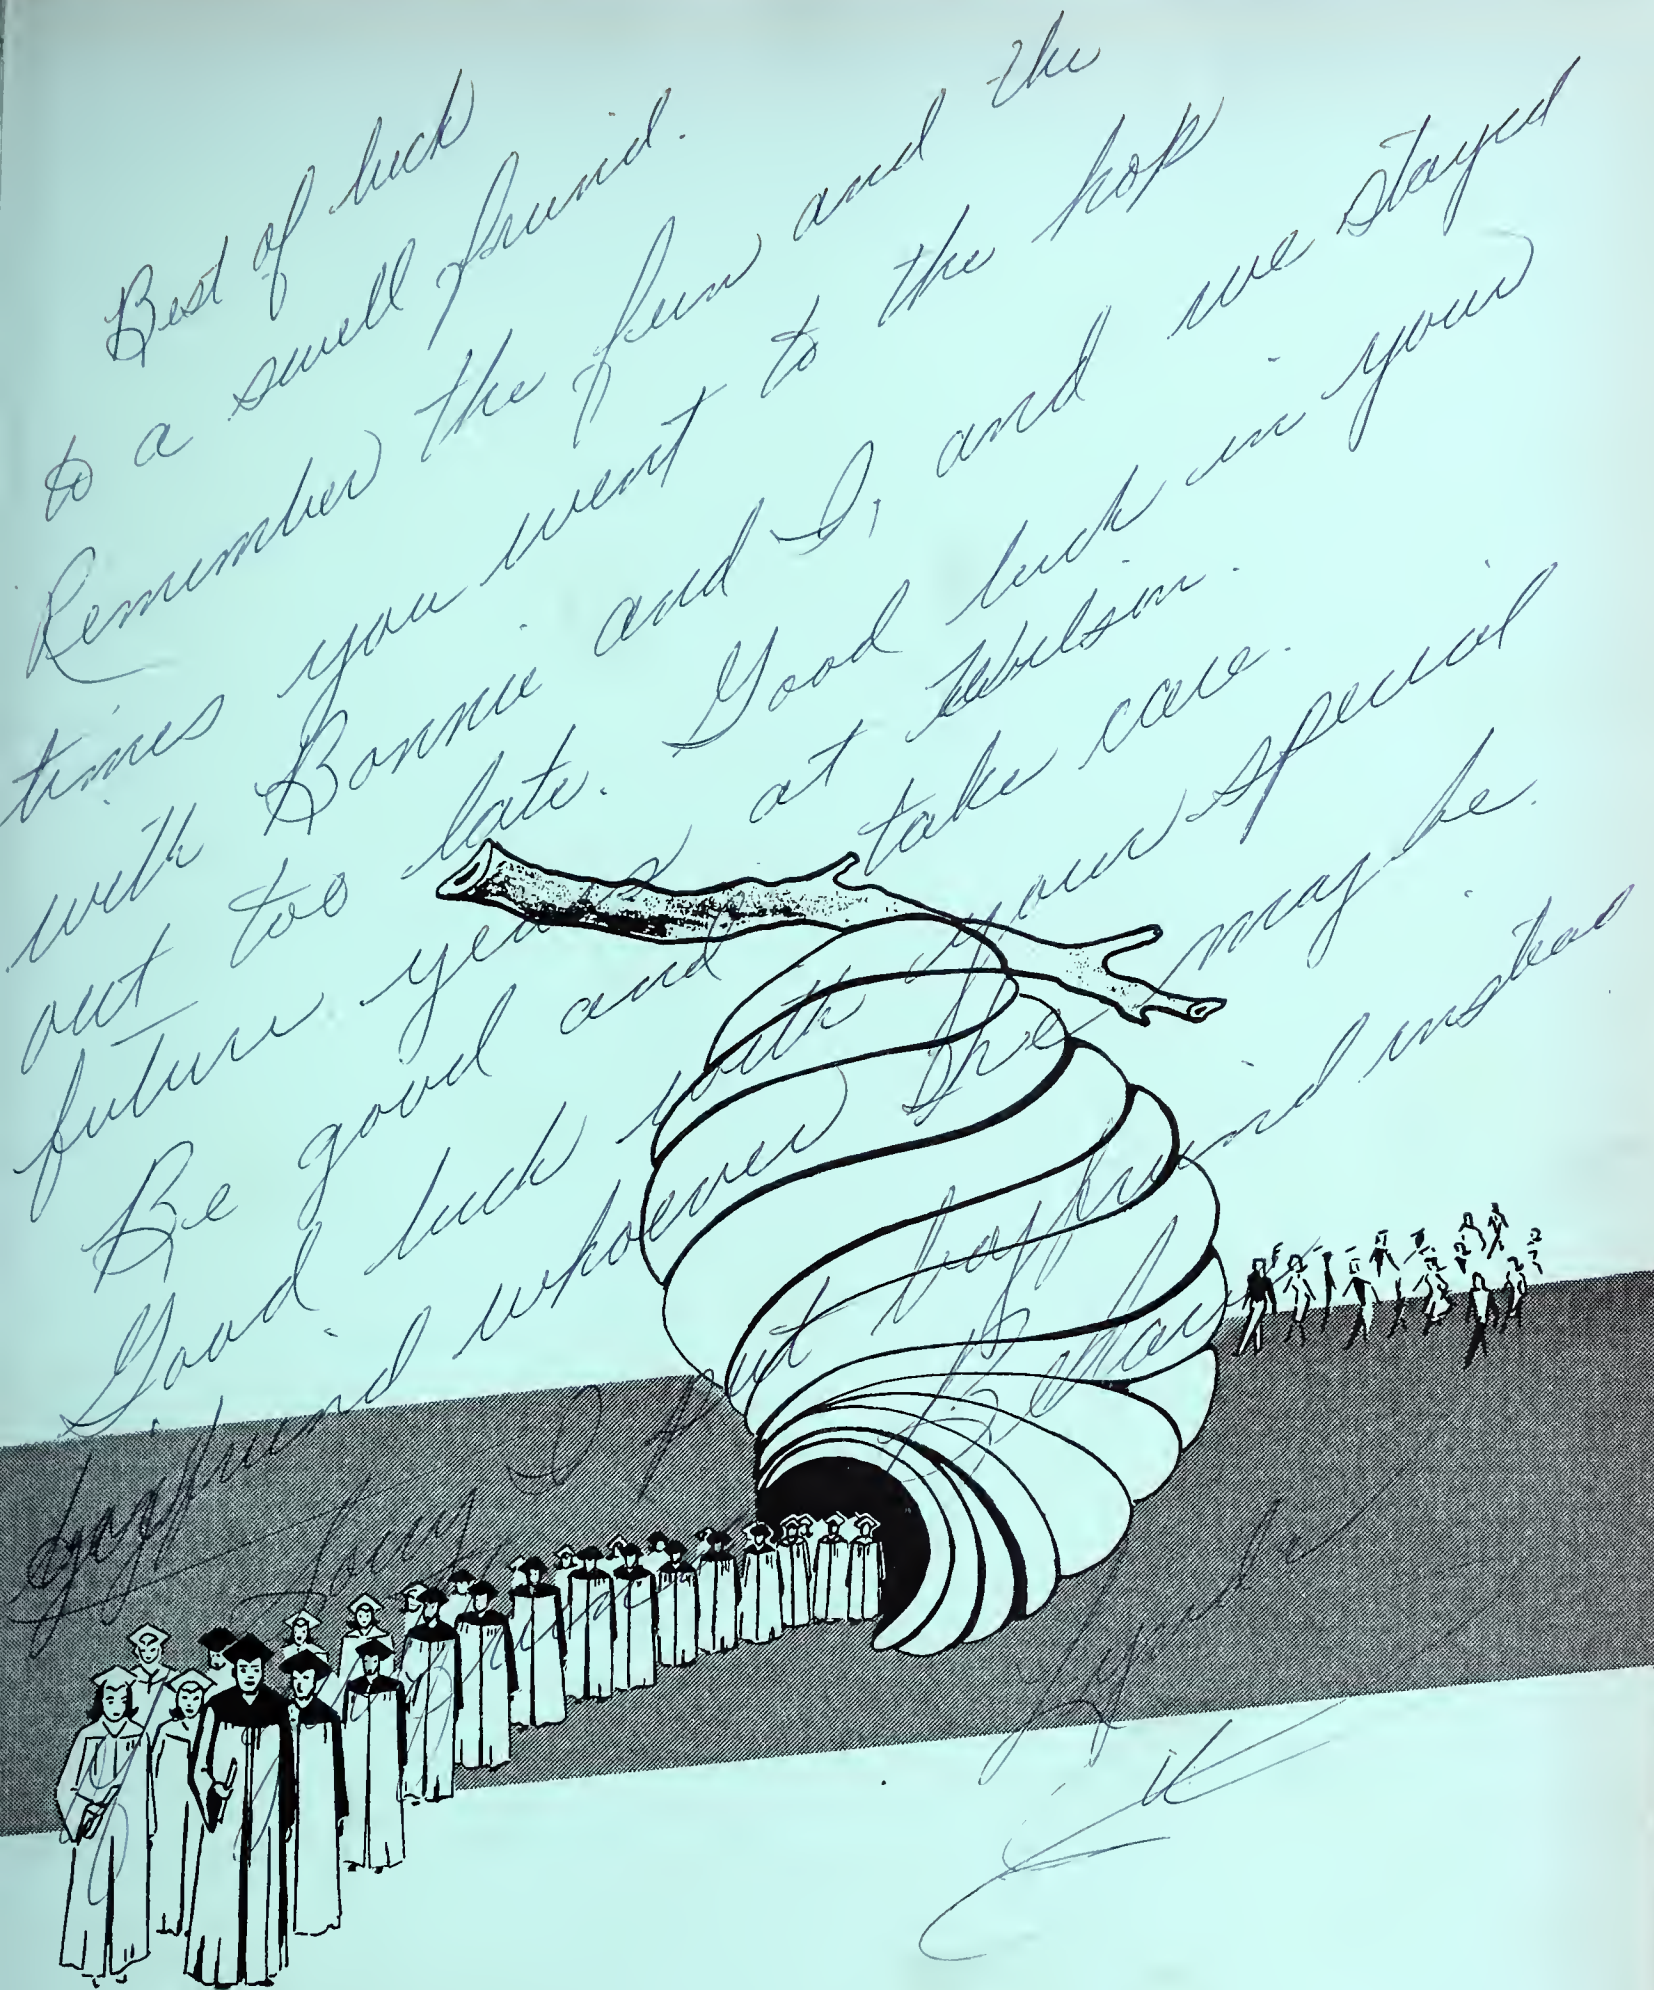 Best of luck
to a swell friend.
Remember the fun and the
times you went to the hop
with Bonnie and I, and we stayed
out too late. Good luck in your
future years at Wilson.
Be good and take care.
Good luck with your special
friend whoever she may be.
Sorry I put boyfriend instead